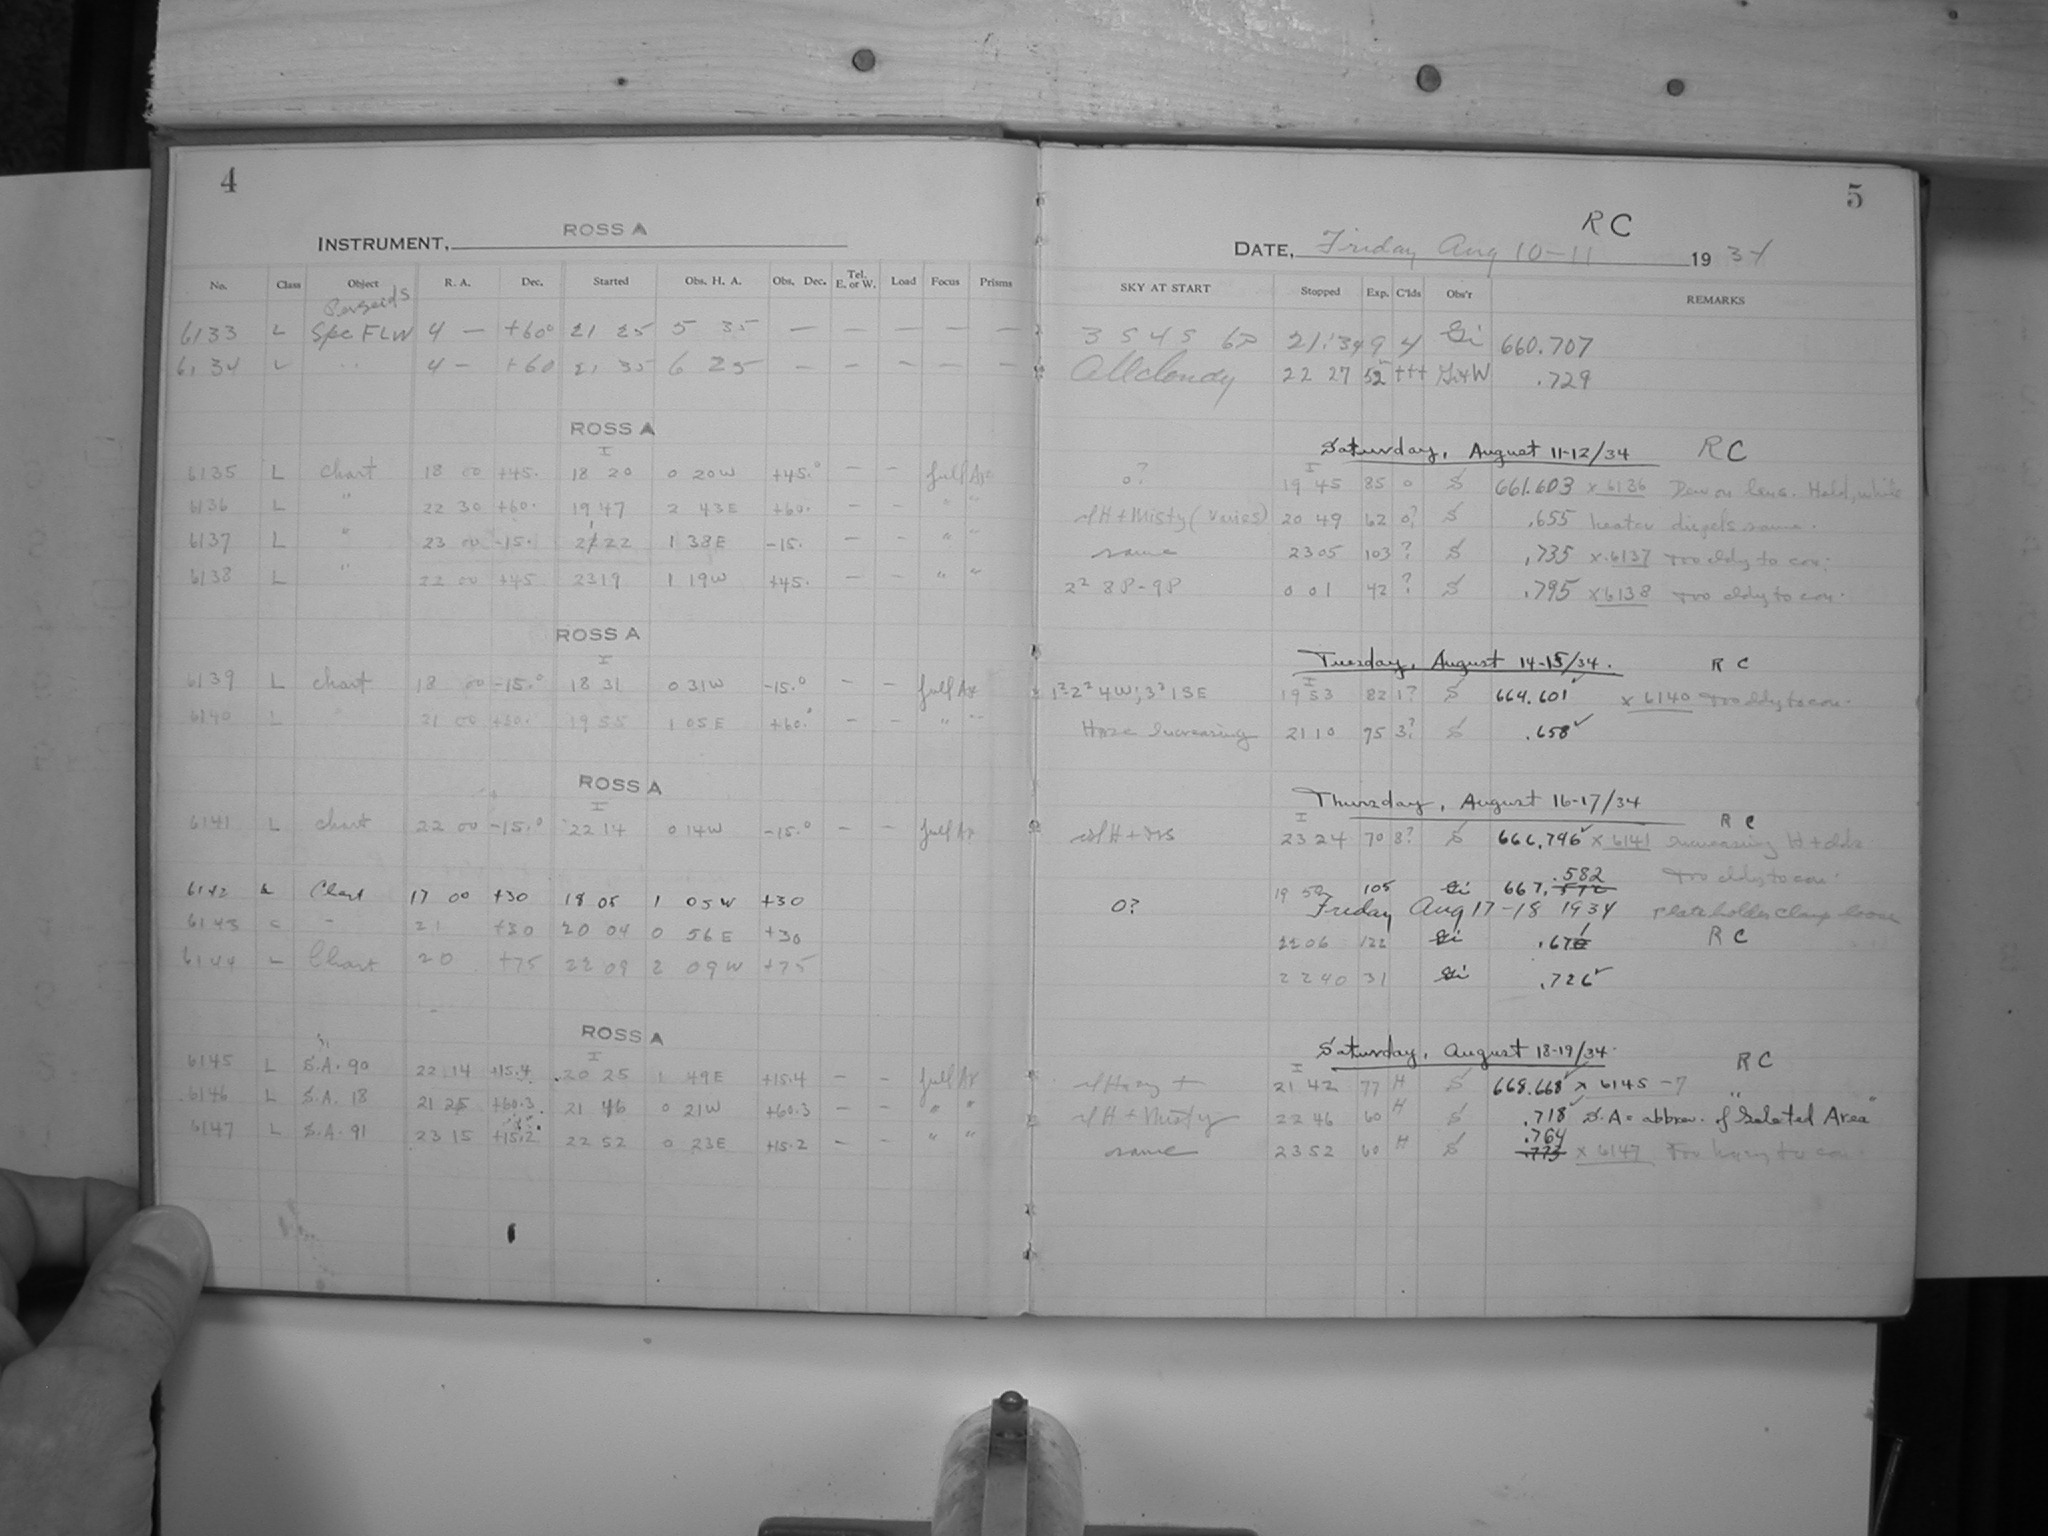 4
INSTRUMENT, ROSS A
No. Class Object R. A. Dec. Started Obs. H. A. Obs. Dec. Tel. E. or W. Load Focus Prisms
Perseids
6133 L Spc FLW 4 — +60° 21 25 5 35 — — — — —
6134 L " 4 — +60 21 35 6 25 — — — — —
ROSS A
6135 L Chart 18 00 +45. 18 20 0 20W +45.° — — full Ap
6136 L " 22 30 +60. 19 47 2 43E +60. — — " "
6137 L " 23 00 -15. 21 22 1 38E -15. — — " "
6138 L " 22 00 +45 23 19 1 19W +45. — — " "
ROSS A
6139 L chart 18 00 -15.° 18 31 0 31W -15.° — — full Ap
6140 L " 21 00 +60. 19 55 1 05E +60.° — — " "
ROSS A
6141 L chart 22 00 -15.° 22 14 0 14W -15.° — — full Ap
6142 Chart 17 00 +30 18 05 1 05W +30
6143 21 +30 20 04 0 56E +30
6144 L Chart 20 +75 22 09 2 09W +75
ROSS A
6145 L S.A. 90 22 14 +15.4 20 25 1 49E +15.4 — — full Ap
6146 L S.A. 18 21 25 +60.3 21 46 0 21W +60.3 — — " "
6147 L S.A. 91 23 15 +15.2 22 52 0 23E +15.2 — — " "
5
RC
DATE, Friday Aug 10-11 1934
SKY AT START Stopped Exp. C'lds Obs'r REMARKS
3 5 4 5 21 34 9 4 Gi 660.707
All cloudy 22 27 52 +++ Gi+W .729
Saturday, August 11-12/34 RC
0? 19 45 85 0 S 661.603 x 6136 Dew on lens. Held, while
H + Misty (Varies) 20 49 62 0? S .655 heater dispels same.
same 23 05 103 ? S .735 x 6137 Too cldy to con.
2² 8P-9P 0 01 42 ? S .795 x 6138 Too cldy to con.
Tuesday, August 14-15/34. RC
1²2²4W; 3²1SE 19 53 82 1? S 664.601 x 6140 Too cldy to con.
Haze Increasing 21 10 75 3? S .658
Thursday, August 16-17/34
RC
23 24 70 8? S 666.746 x 6141 Increasing H + clds
Too cldy to con.
19 50 105 Gi 667. .582
0? Friday Aug 17-18 1934 Plate holder clamp loose
22 06 122 Gi .671 RC
22 40 31 Gi .726
Saturday, August 18-19/34.
RC
Hazy + 21 42 77 H S 668.668 x 6145-7
H + Misty 22 46 60 H S .718 S.A = abbrev. of "Selected Area"
.764
same 23 52 60 H S .773 x 6147 Too hazy to con.